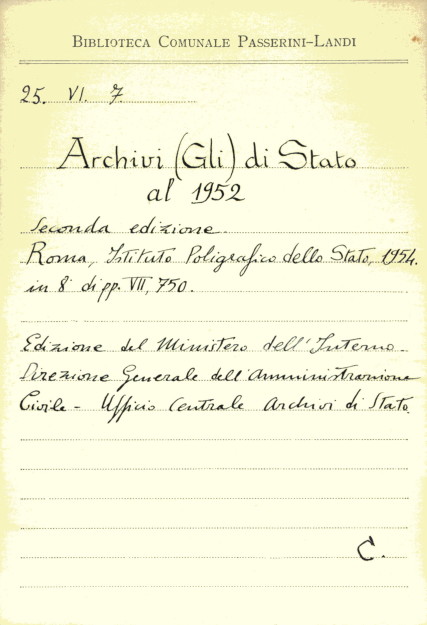 BIBLIOTECA COMUNALE PASSERINI-LANDI
25. VI. 7.
Archivi (Gli) di Stato
al 1952
Seconda edizione.
Roma, Istituto Poligrafico dello Stato, 1954.
in 8° di pp. VII, 750.
Edizione del Ministero dell'Interno -
Direzione Generale dell'Amministrazione
Civile - Ufficio Centrale Archivi di Stato.
C.